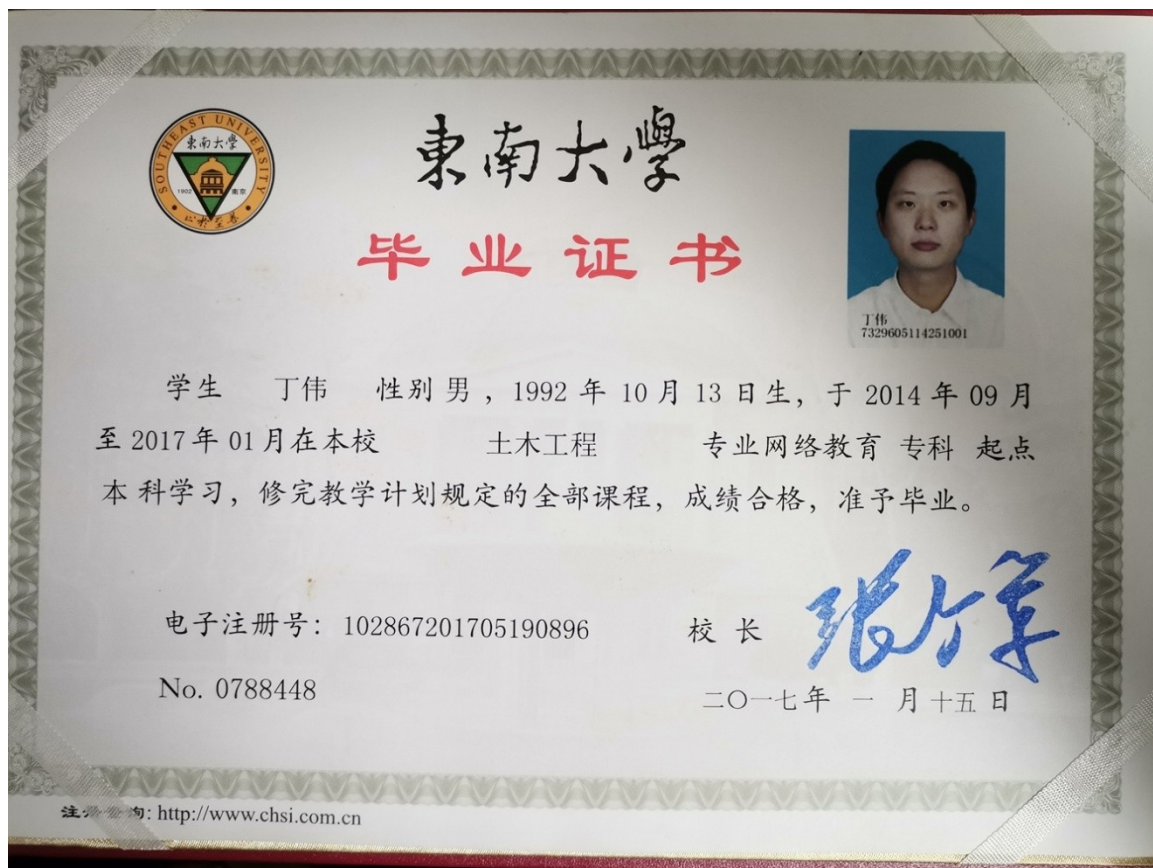 SOUTHEAST UNIVERSITY
東南大學
1902 南京
止於至善
東南大學
毕业证书
丁伟
7329605114251001
学生 丁伟 性别 男 ，1992 年 10 月 13 日生，于 2014 年 09 月
至 2017 年 01 月在本校 土木工程 专业网络教育 专科 起点
本 科学习，修完教学计划规定的全部课程，成绩合格，准予毕业。
电子注册号：102867201705190896
校 长
No. 0788448
二〇一七年 一 月 十五 日
询: http://www.chsi.com.cn